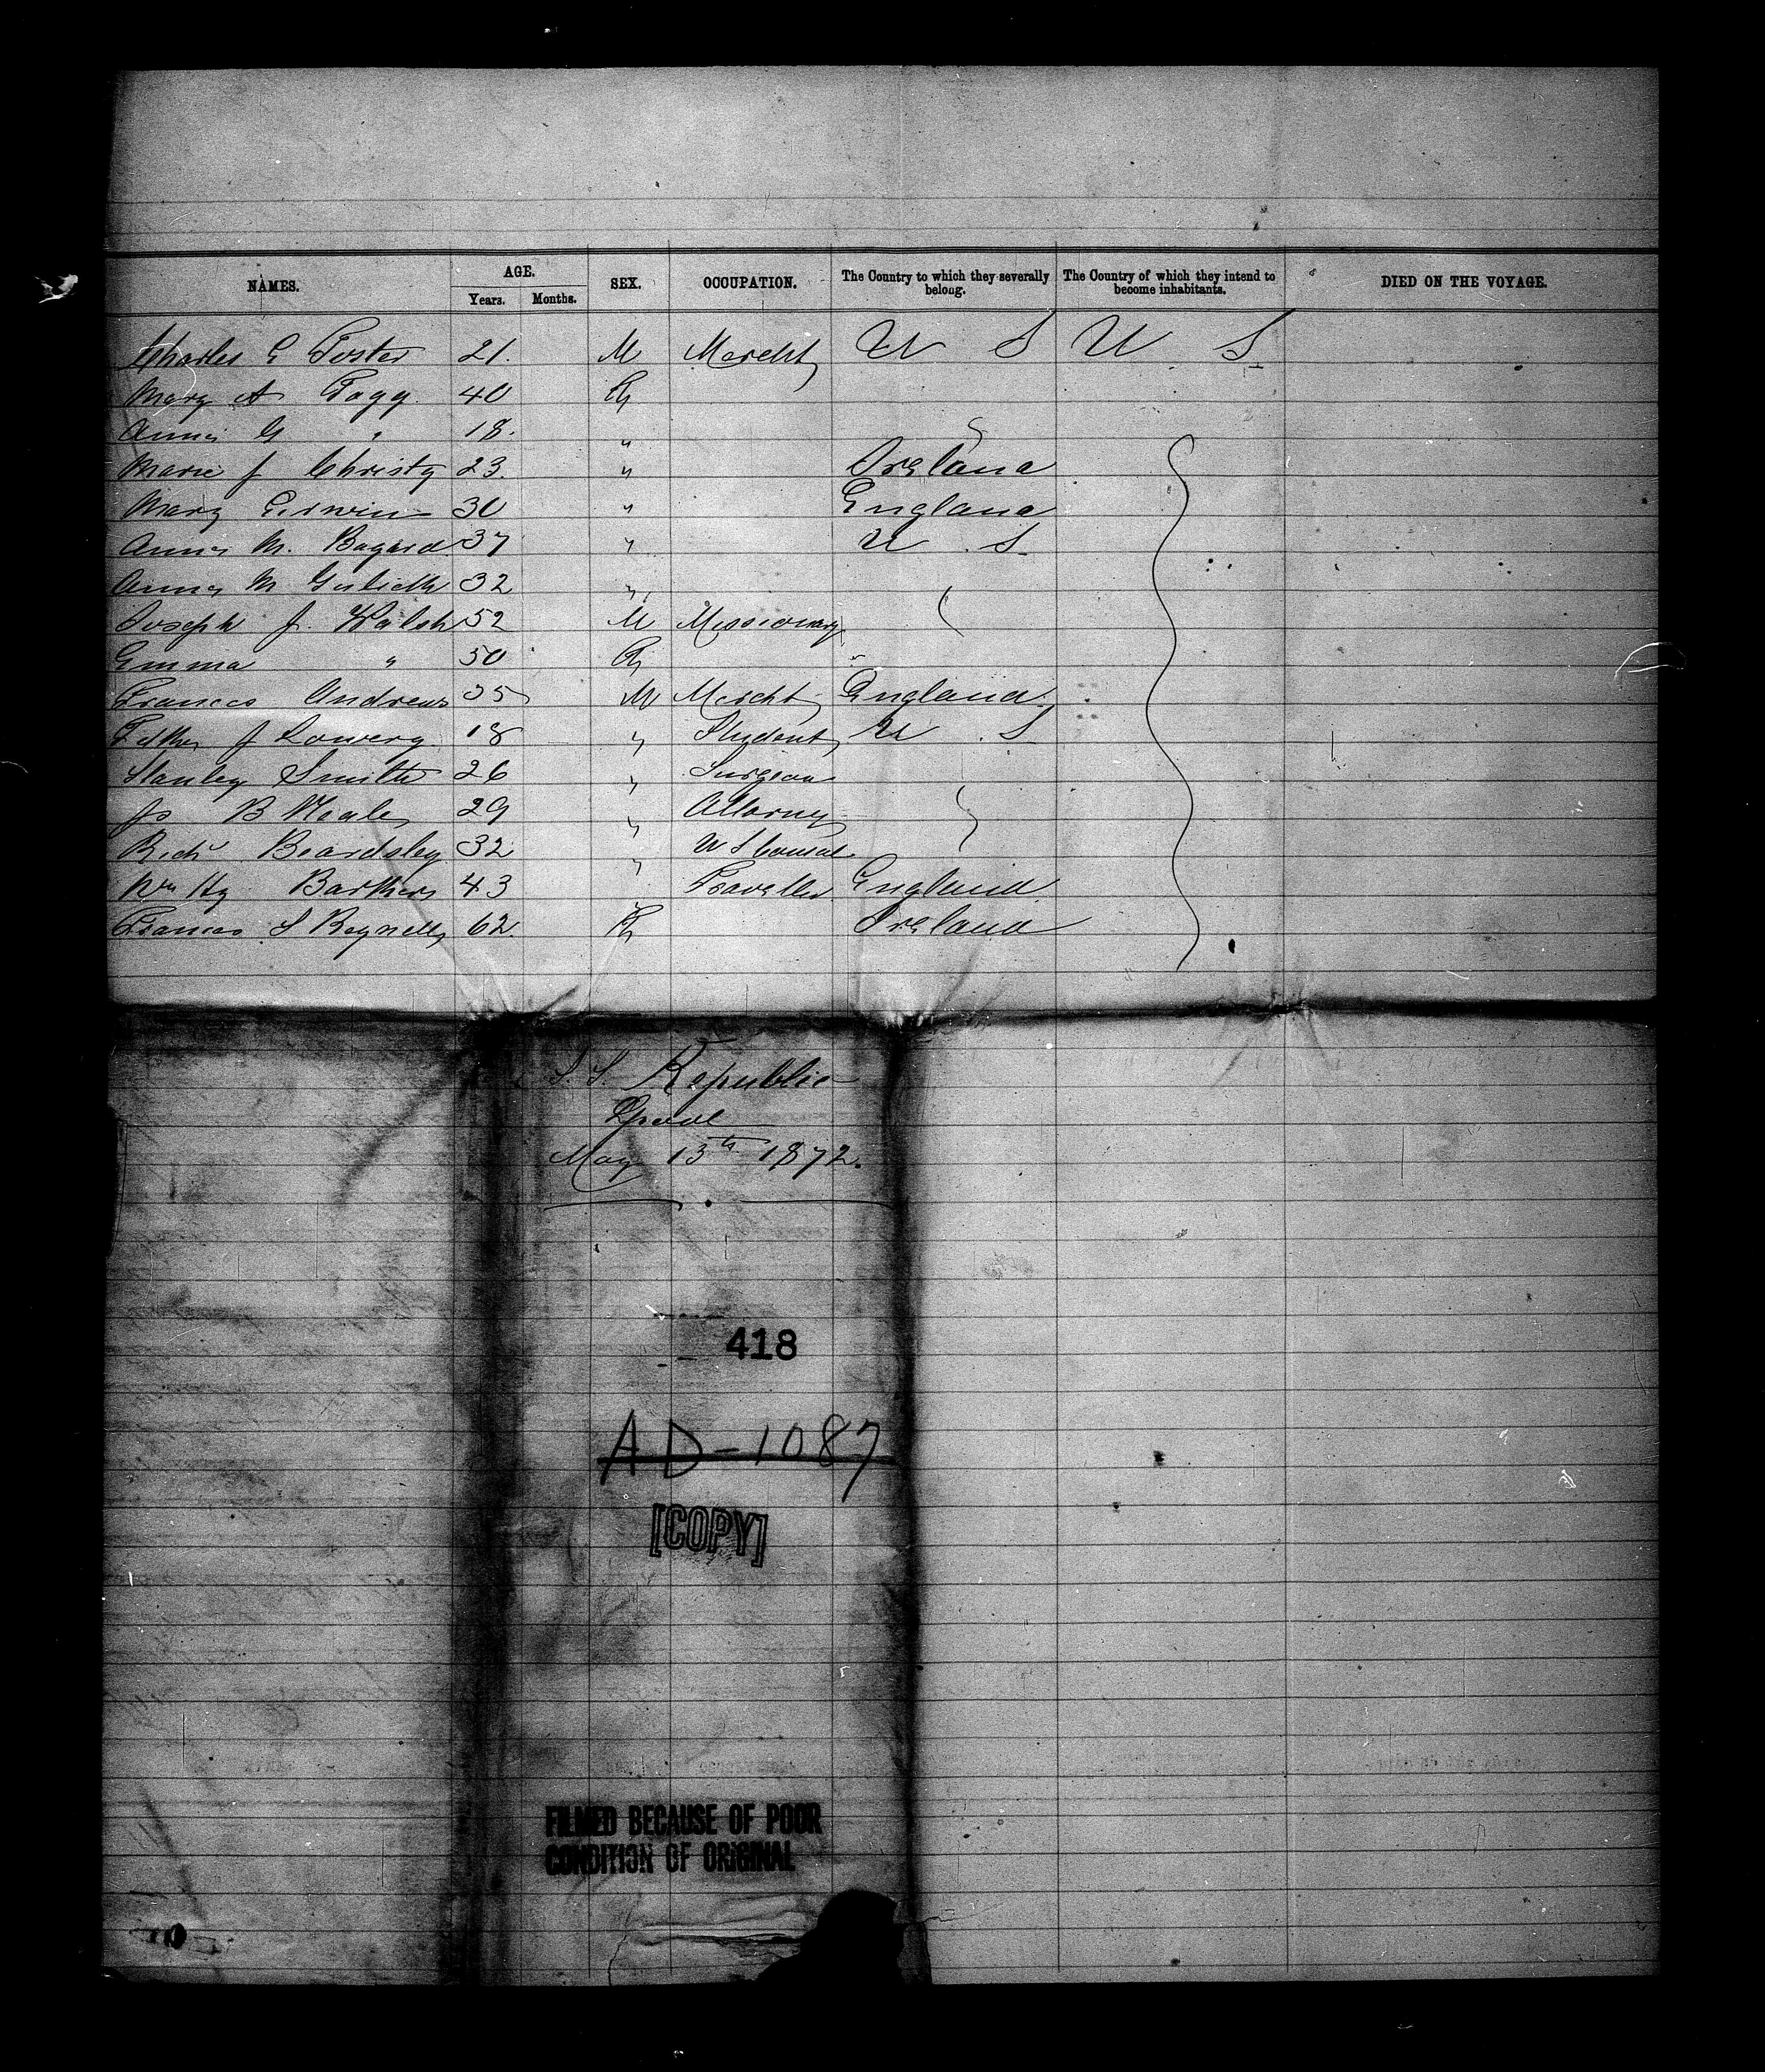 NAMES. AGE. SEX. OCCUPATION. The Country to which they severally belong. The Country of which they intend to become inhabitants. DIED ON THE VOYAGE.
Years. Months.
Charles G Foster 21. M Mercht U S U S
Mary A Fagg 40 F
Annie G " 18. "
Marie J Christy 23. " Ireland
Mary Erwin 30 " England
Anna M. Bagard 37 " U S
Anna M 32 "
Joseph J. Walsh 52 M Missionary
Emma " 50 F
Frances Andrews 35 M Mercht England
J Lowery 18 " Student U S
Stanley Smith 26 " Surgeon
Js B 29 " Attorney
Richd Beardsley 32 " U S Consul
Wm Hy Barkers 43 " Traveller England
Frances S Reynell 62. F Ireland
S. S. Republic
Lpool
May 13th 1872.
418
AD-1087
[COPY]
FILMED BECAUSE OF POOR
CONDITION OF ORIGINAL